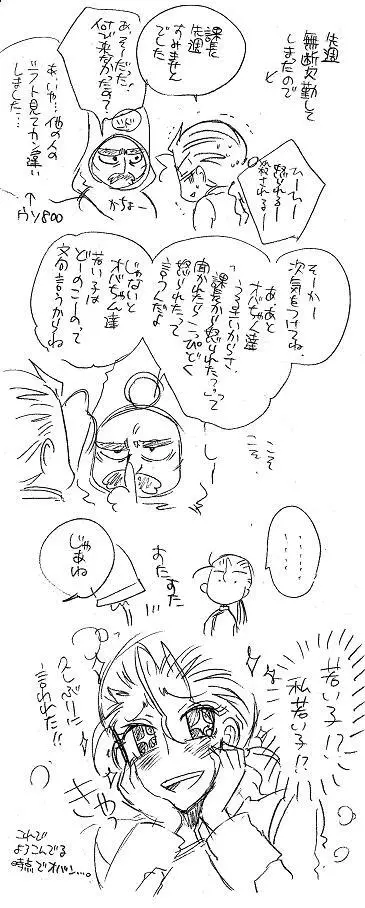 先週
無断欠勤して
しまたので
と
課長
先週
すみませんと
でした
あ、そーだった！
何で来なかったの？
あ、いや…他の人の
シフト見てカン違い
しました…
↑
ウソ800
かちょー
ひー
怒られるー
殺されるー
そーかー
次気をつけてね
あ、あと
オバちゃん達
うるさいからさ、
「課長から怒られた？」って
聞かれたらこっぴどく
怒られたって
言うんだよ
じゃないと
オバちゃん達
若い子は
どーのこーのって
文句言うからね
こそ
こそ
……
じゃあね
すたすた
若い子!?
私若い子!?
久しぶりに
言われた!!
きゃっ
これで
よろこんでる
時点でオバン…。